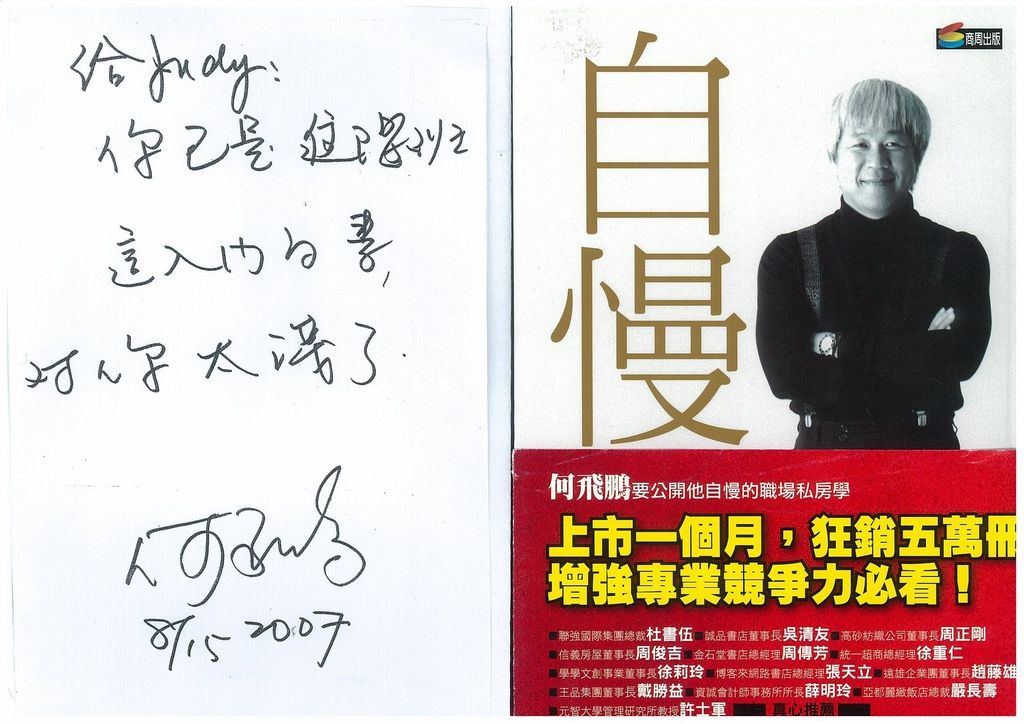 給Judy:
你已是進階班
這入門的書,
对你太淺了.
何飛鵬
8/15 2007
商周出版
自慢
何飛鵬要公開他自慢的職場私房學
上市一個月，狂銷五萬冊
增強專業競爭力必看！
■聯強國際集團總裁杜書伍■誠品書店董事長吳清友■高砂紡織公司董事長周正剛
■信義房屋董事長周俊吉■金石堂書店總經理周傳芳■統一超商總經理徐重仁
■學學文創事業董事長徐莉玲■博客來網路書店總經理張天立■遠雄企業團董事長趙藤雄
■王品集團董事長戴勝益■資誠會計師事務所所長薛明玲■亞都麗緻飯店總裁嚴長壽
■元智大學管理研究所教授許士軍 真心推薦